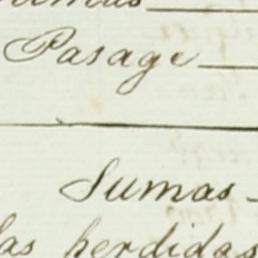 Pasage
Sumas
las perdidas